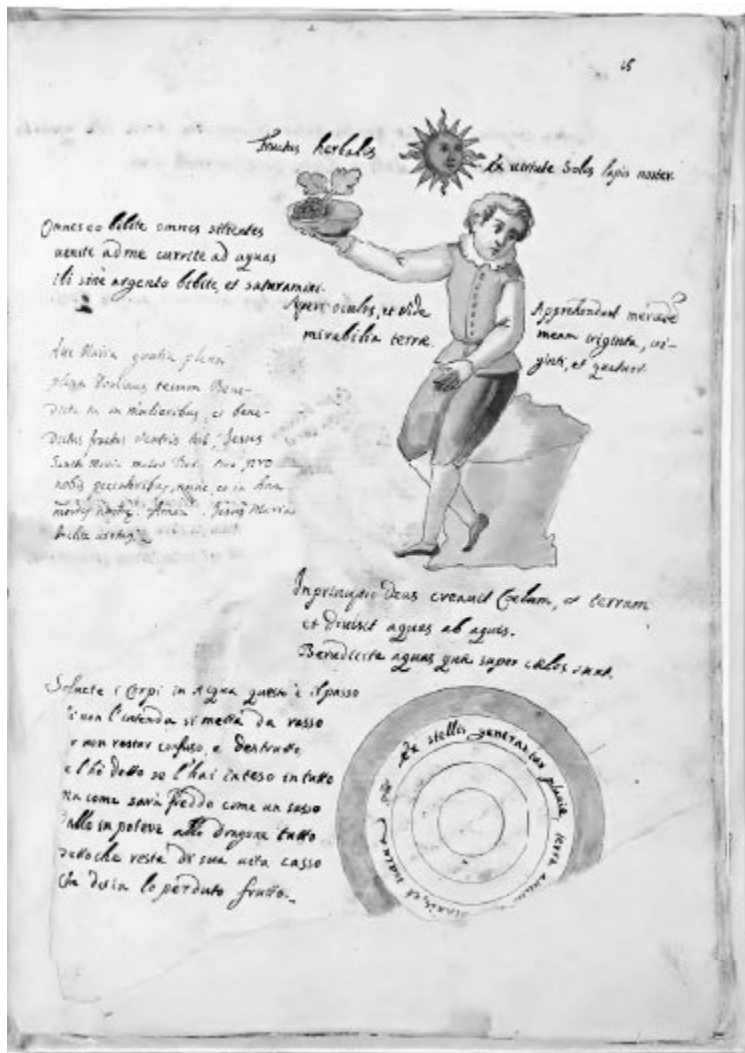 15
Fructus herbalis
Ex virtute Solis lapis noster.
Omnes eo bibite omnes sitientes
venite ad me currite ad aquas
ibi sine argento bibite, et saturamini.
Aperi oculos, et vide
mirabilia terræ.
Apprehendunt
meam viginta, vi-
ginti, et quatuor.
Ave Maria gratia plena
Dominus tecum Bene-
dicta tu in mulieribus, et bene-
dictus fructus ventris tui, Jesus
Sancta Maria mater Dei pro
nobis peccatoribus, nunc, et in hora
mortis nostræ. Amen. Jesus Maria
In principio Deus creavit Coelum, et terram
et divisit aquas ab aquis.
Benedicite aquas quæ super cælos sunt.
Solvete i Corpi in Acqua questo è il passo
non l'intenda si metta da vasso
non restar confuso, e destrutto
l'hò detto se l'hai inteso in tutto
come sarà freddo come un sasso
in potere allo dragone tutto
che resta di sua vita casso
Che dia lo perduto frutto.
Ex stellis generatur pluvia, terra